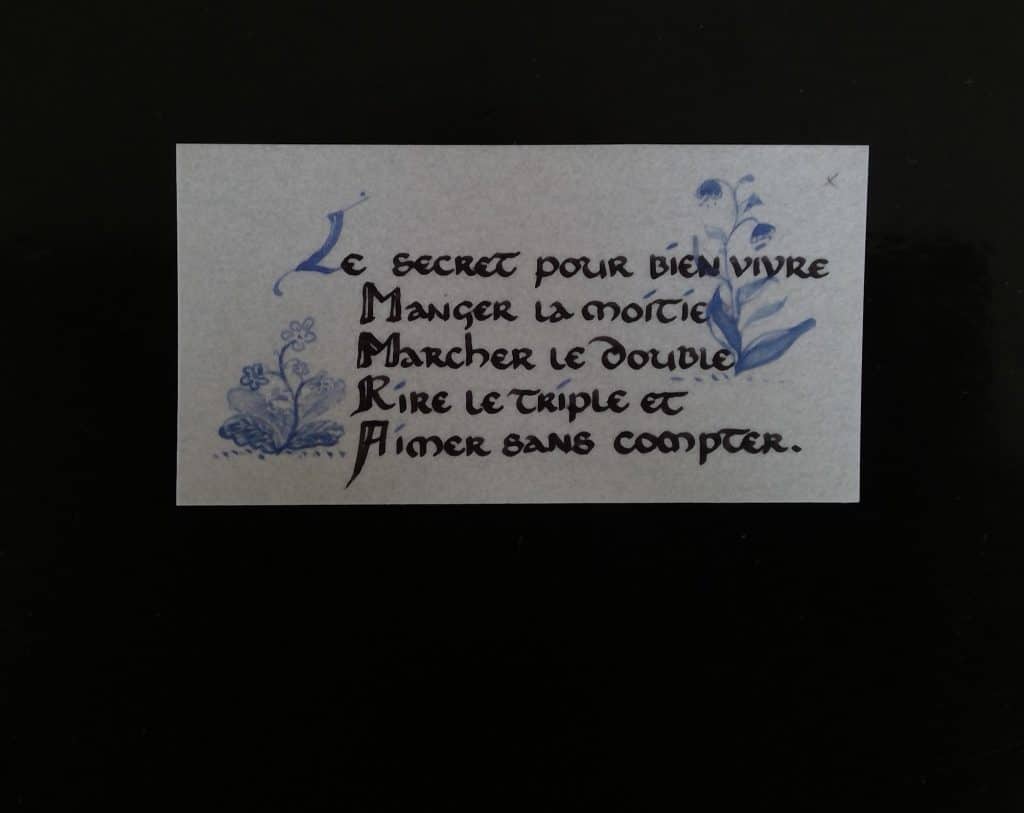 Le secret pour bien vivre
Manger la moitié
Marcher le double
Rire le triple et
Aimer sans compter.